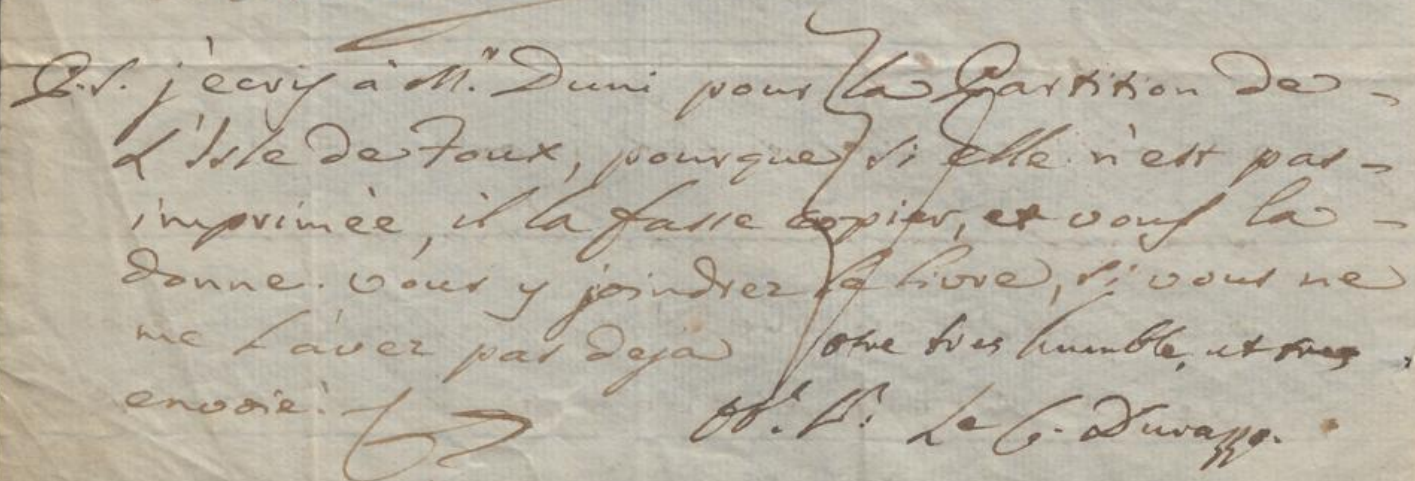 P.S. j'ecris à Mr. Duni pour la Partition de
L'Isle de Foux, pourque si elle n'est pas
imprimèe, il la fasse copier, et vous la
donne. vous y joindrez le livre, si vous ne
me l'avez pas deja votre tres humble, et tres
envoiè.
Ob. Sr. Le C. Durazzo.